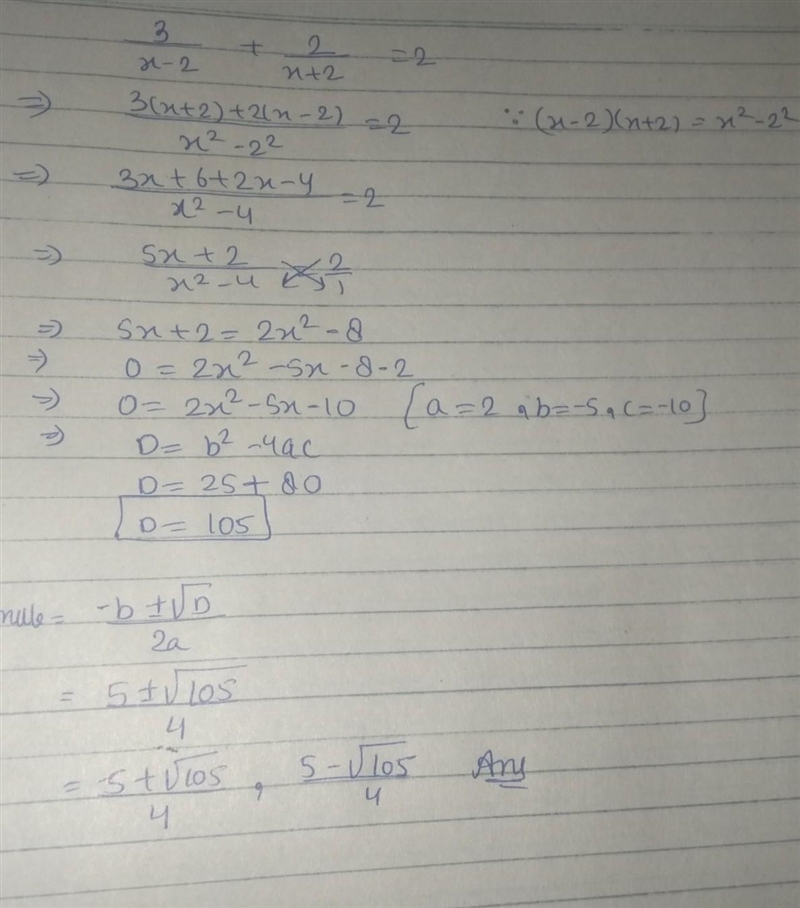 3/(x-2) + 2/(x+2) = 2
⇒ (3(x+2)+2(x-2))/(x²-2²) = 2 ∵ (x-2)(x+2) = x²-2²
⇒ (3x+6+2x-4)/(x²-4) = 2
⇒ (5x+2)/(x²-4) = 2/1
⇒ 5x+2 = 2x²-8
⇒ 0 = 2x²-5x-8-2
⇒ 0 = 2x²-5x-10 [a=2, b=-5, c=-10]
⇒ D = b²-4ac
D = 25+80
D = 105
= (-b±√D)/2a
= (5±√105)/4
= (5+√105)/4, (5-√105)/4 Ans